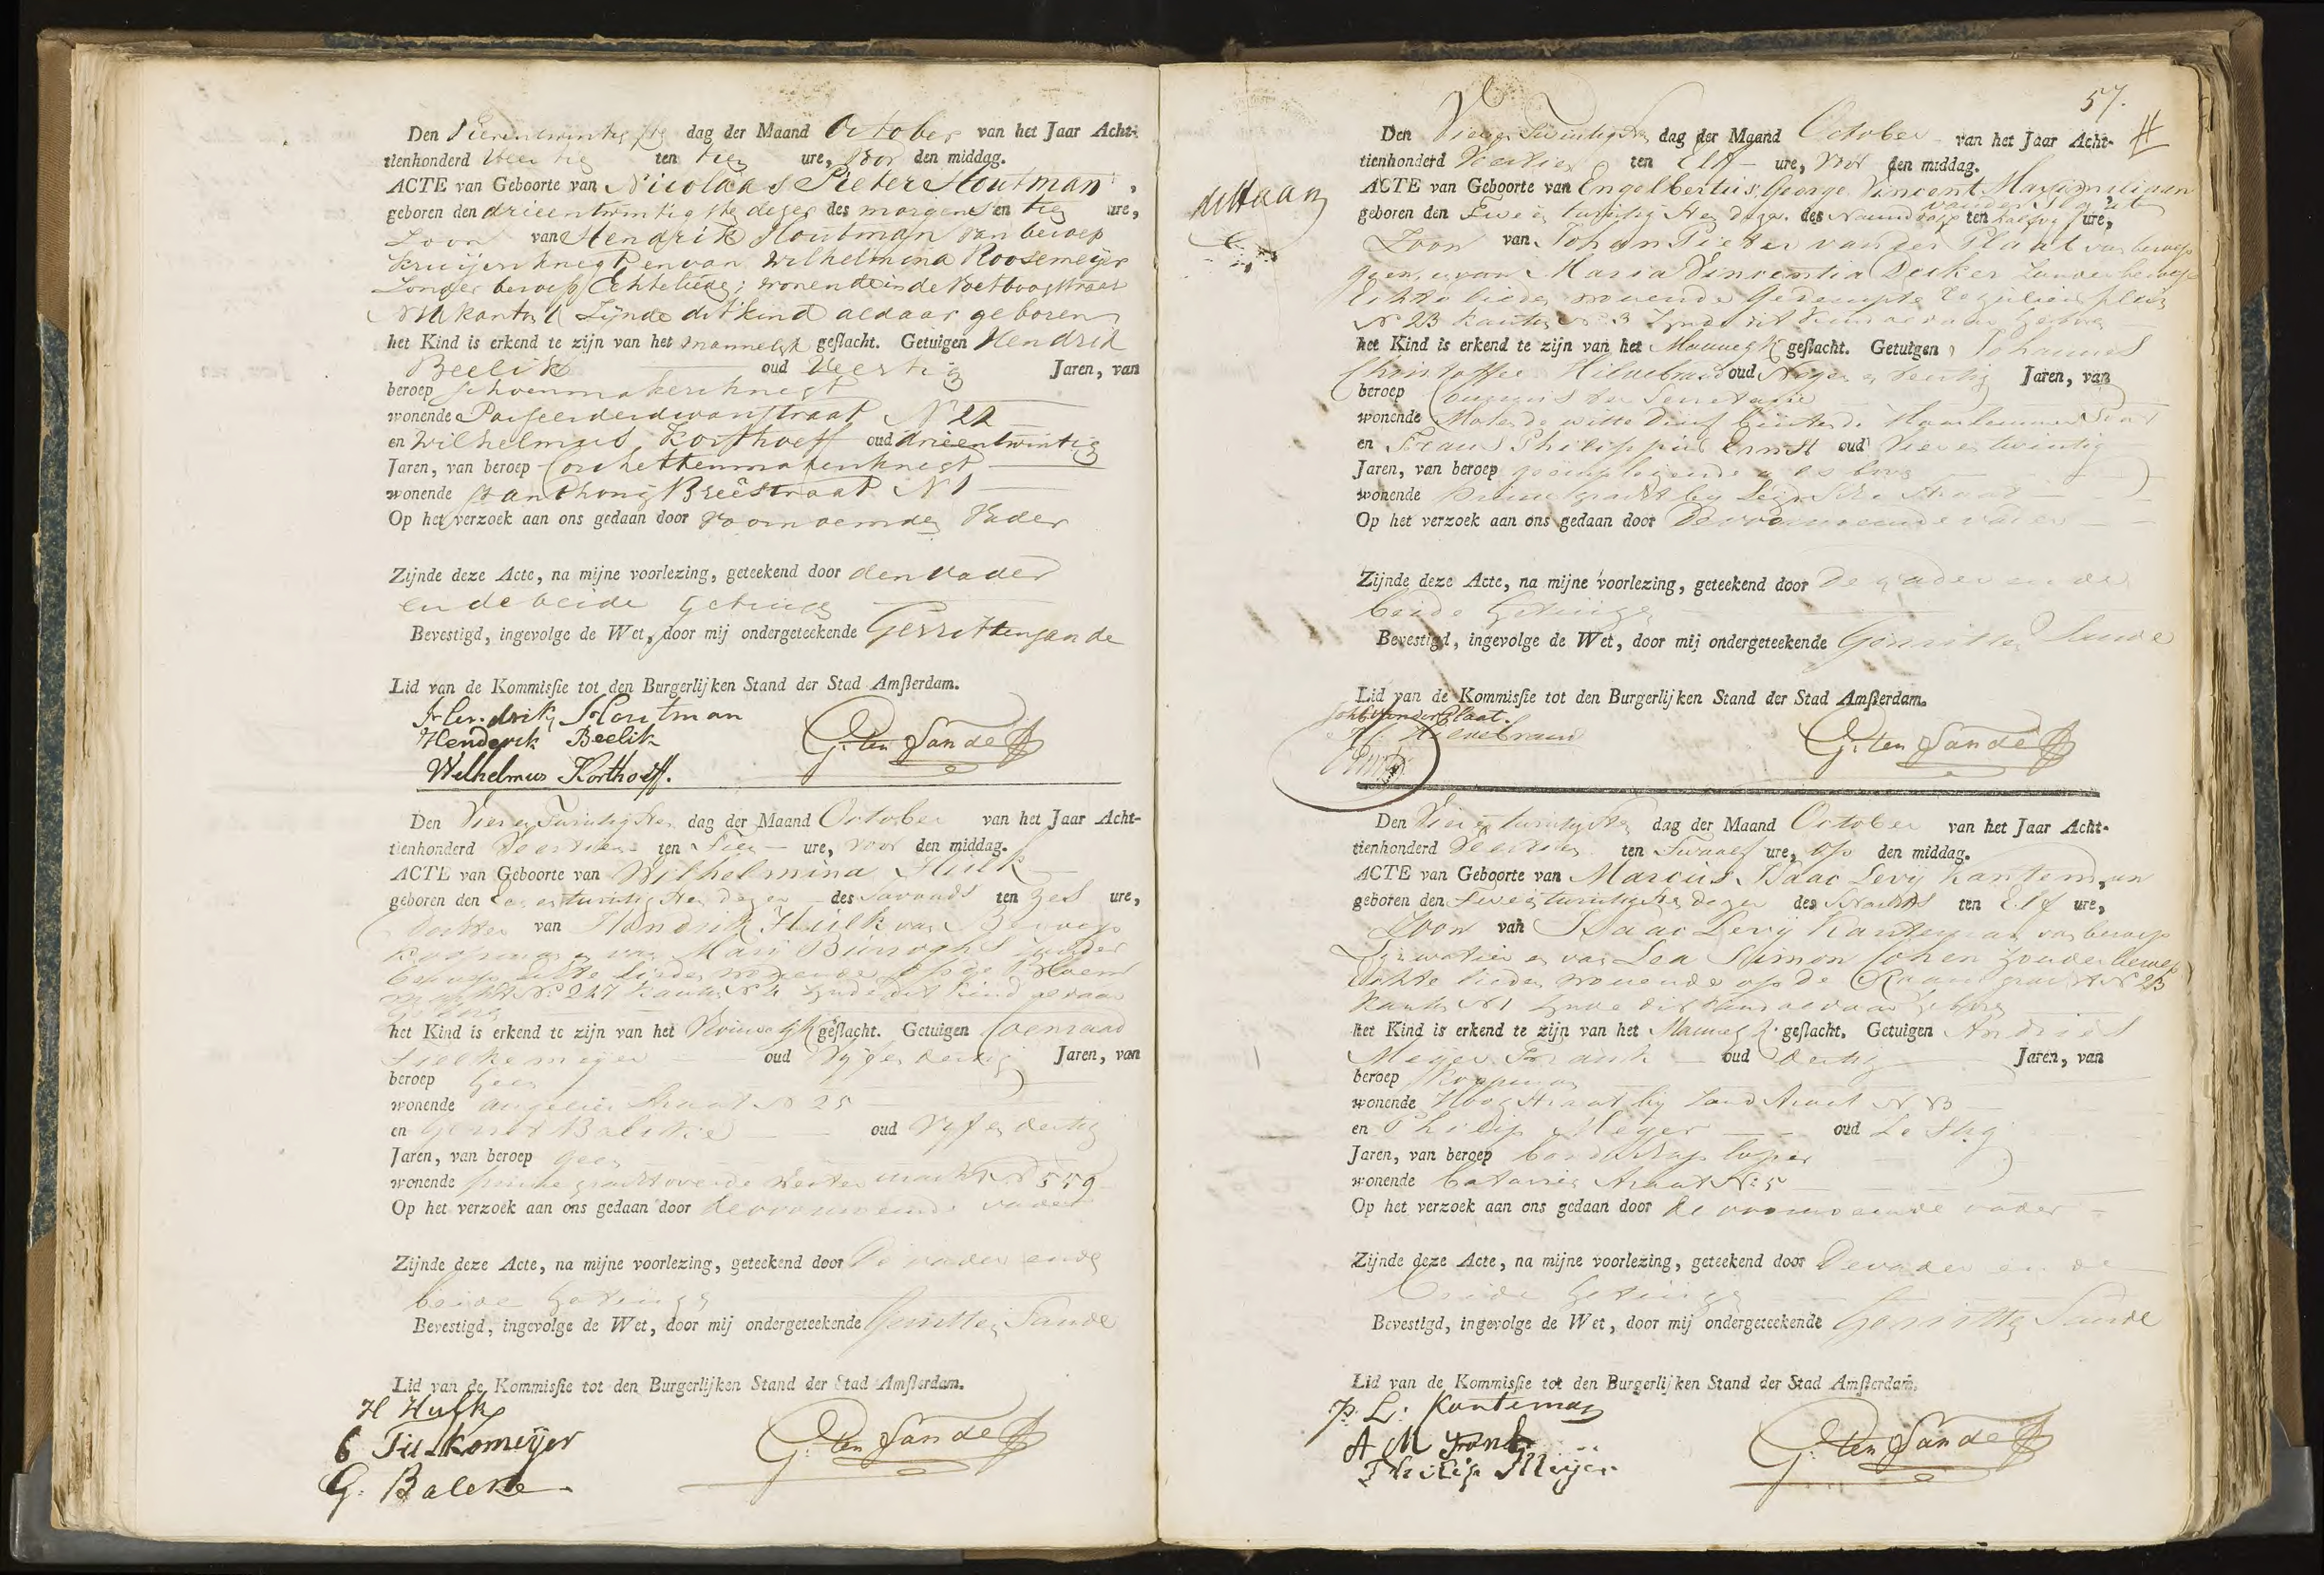 Den Vierentwintigste dag der Maand October van het Jaar Acht-
tienhonderd Veertien ten tien ure, voor den middag.
ACTE van Geboorte van Nicolaas Pieter Houtman,
geboren den drieentwintigste dezer des morgens ten tien ure,
Zoon van Hendrik Houtman van beroep
kruijersknegt en van Wilhelmina Roosemeijer
Zonder beroep Echtelieden; wonende in de Voetboogstraat
Kanton Zijnde dit kind aldaar geboren
het Kind is erkend te zijn van het mannelijk geslacht. Getuigen Hendrik
Beelik oud Veertig Jaren, van
beroep schoenmakersknegt
wonende Passeerderdwarsstraat N 22
en Wilhelmus Korthoeff oud drieentwintig
Jaren, van beroep
wonende St Anthonij Breêstraat N 1
Op het verzoek aan ons gedaan door voornoemden Vader
Zijnde deze Acte, na mijne voorlezing, geteekend door den Vader
en de beide getuigen
Bevestigd, ingevolge de Wet, door mij ondergeteekende Gerrit ten Sande
Lid van de Kommissie tot den Burgerlijken Stand der Stad Amsterdam.
Hendrik Houtman
Henderik Beelik
G: ten Sande
Wilhelmus Korthoeff.
Den Vier en Twintigsten dag der Maand October van het Jaar Acht-
tienhonderd Veertien ten Tien ure, voor den middag.
ACTE van Geboorte van Wilhelmina Hülk
geboren den Een en twintigsten dezer des savonds ten zes ure,
Dochter van Hendrik Hülk van Beroep
Koopman en van Mari zonder
beroep echte lieden wonende op de
N° 247 Kanton N 4 zynde dit Kind aldaar
geboren
het Kind is erkend te zijn van het Vrouwelyk geslacht. Getuigen Coenraad
oud Vyf en dertig Jaren, van
beroep Geen
wonende Angeliers straat N 25
en Gerrit Balcke oud Vyf en dertig
Jaren, van beroep geen
wonende prince gracht over de Wester markt N 559
Op het verzoek aan ons gedaan door de voornoemde vader
Zijnde deze Acte, na mijne voorlezing, geteekend door De vader en de
beide Getuigen
Bevestigd, ingevolge de Wet, door mij ondergeteekende Gerrit ten Sande
Lid van de Kommissie tot den Burgerlijken Stand der Stad Amsterdam.
H Hulk
G: ten Sande
G. Balcke
57.
Den Vier en Twintigsten dag der Maand October van het Jaar Acht-
tienhonderd Veertien ten Elf ure, voor den middag.
ACTE van Geboorte van Engelbertus George Vincent Maximiliaan
van der Plaat
geboren den Twee en twintigsten dezer des Naamiddags ten half vyf ure,
Zoon van Johan Pieter van der Plaat van beroep
geen, en van Maria Vincentia Decker Zonder beroep
Echte lieden wonende Gedempte Bagijnen plein
N° 23 Kanton N° 3 Zynde dit Kind aldaar Geboren
het Kind is erkend te zijn van het Mannelyk geslacht. Getuigen Johannes
Christoffer Hildebrand oud Negen en dertig Jaren, van
beroep Commis ter Secretarie
wonende Molen de witte Duif buiten de Haarlemmer Poort
en Frans Philippus Ernst oud Vier en twintig
Jaren, van beroep
wonende Prince gracht by Leydsche Straat
Op het verzoek aan ons gedaan door De voornoemde vader
Zijnde deze Acte, na mijne voorlezing, geteekend door De vader en de
beide Getuigen
Bevestigd, ingevolge de Wet, door mij ondergeteekende Gerrit ten Sande
Lid van de Kommissie tot den Burgerlijken Stand der Stad Amsterdam.
van der Plaat.
Hildebrand
G: ten Sande
Ernst
Den Vier en twintigsten dag der Maand October van het Jaar Acht-
tienhonderd Veertien ten Twaalf ure, op den middag.
ACTE van Geboorte van Marcus Isaac Levij Kanteman
geboren den Twee en twintigsten dezer des Snachts ten Elf ure,
Zoon van Isaac Levij Kanteman van beroep
en van Lea Simon Cohen Zonder beroep
Echte lieden wonende op de Raam gracht N° 23
Kanton N 1 Zynde dit Kind aldaar geboren
het Kind is erkend te zijn van het Mannelyk geslacht. Getuigen Andries
Meyer Frank oud dertig Jaren, van
beroep Koopman
wonende Hoogstraat by Zandstraat N 13
en Philip Meyer oud Zestig
Jaren, van beroep boodschap loper
wonende Batavier straat N: 5
Op het verzoek aan ons gedaan door de voornoemde vader
Zijnde deze Acte, na mijne voorlezing, geteekend door De vader en de
beide Getuigen
Bevestigd, ingevolge de Wet, door mij ondergeteekende Gerrit ten Sande
Lid van de Kommissie tot den Burgerlijken Stand der Stad Amsterdam.
L: Kanteman
A M Frank
G: ten Sande
Philip Meijer